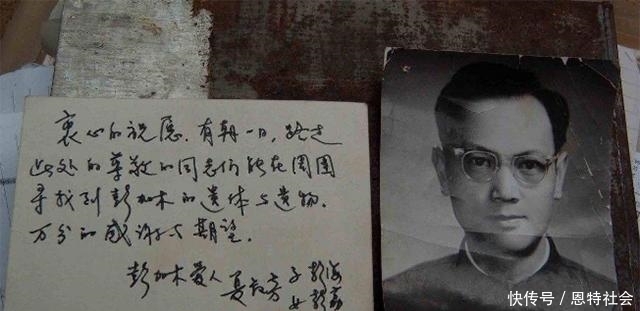 衷心的祝愿，有朝一日，路过
此处的尊敬的同志们能在周围
寻找到彭加木的遗体与遗物．
万分的感谢与期望．
彭加木爱人 夏叔芳 子 彭海
女 彭荔
快传号／恩特社会